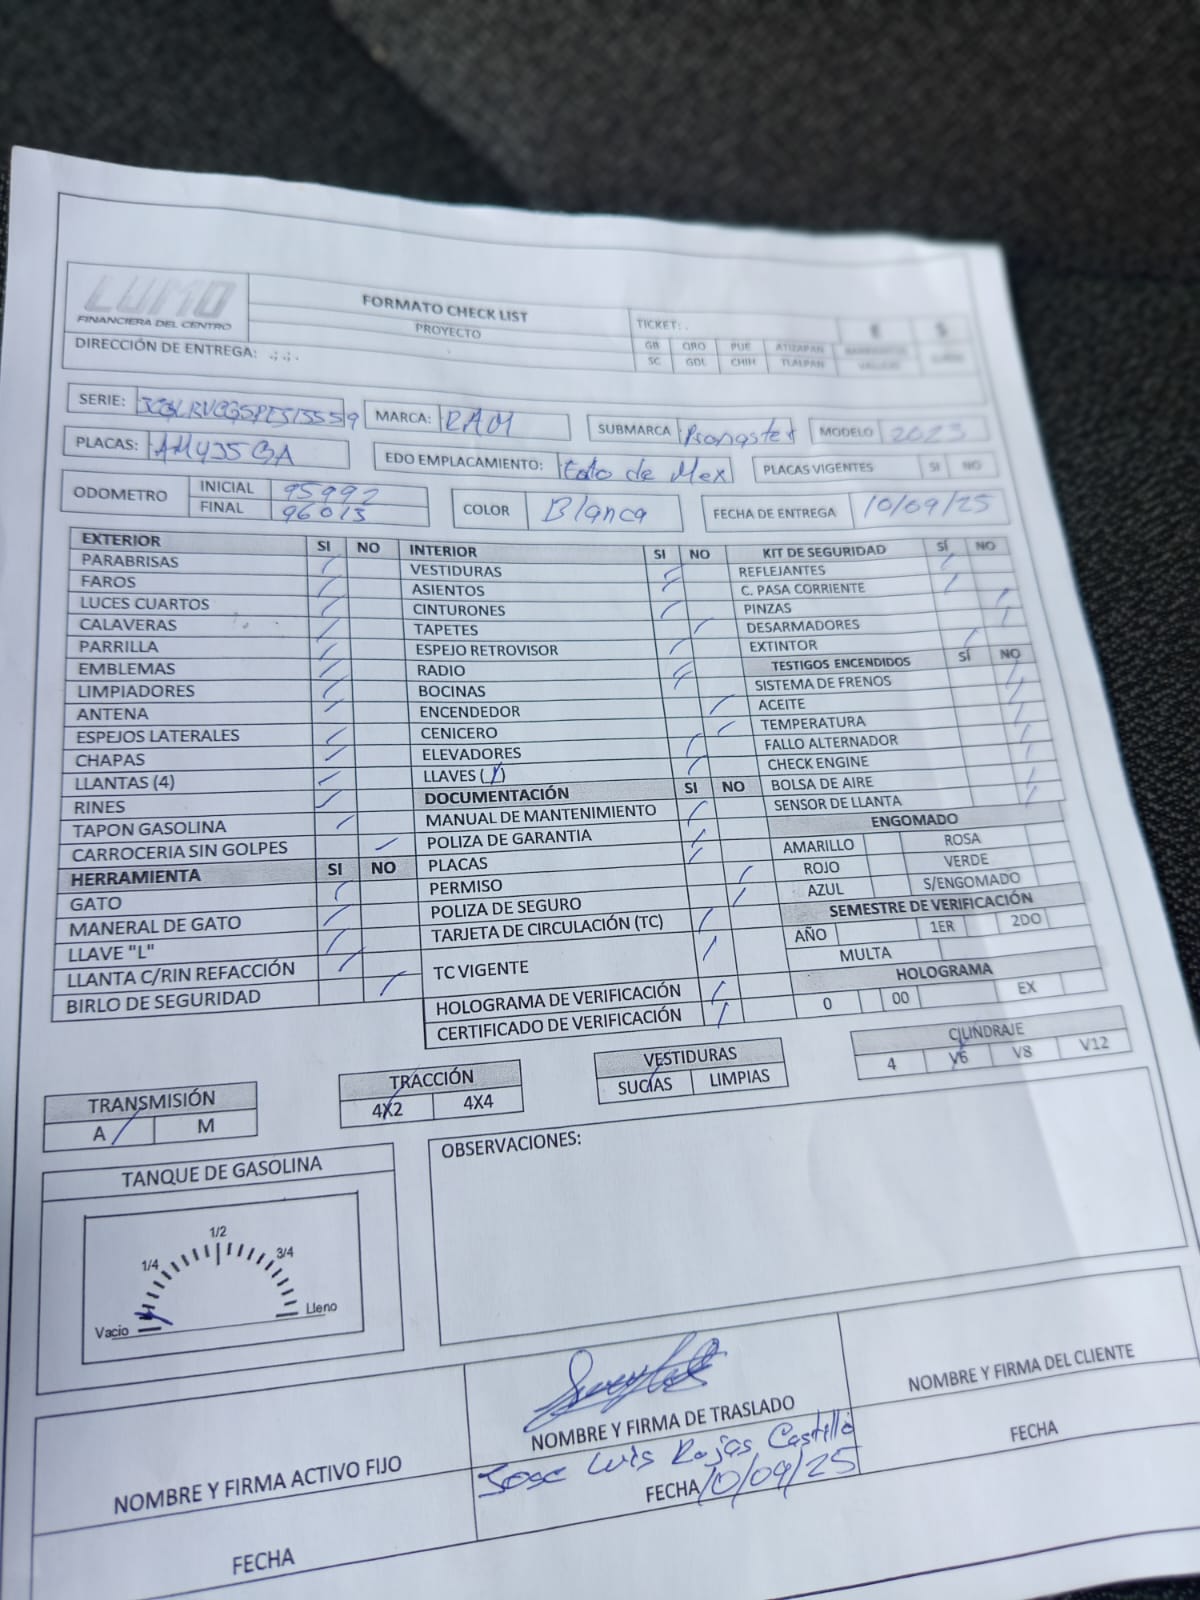 LUMO
FINANCIERA DEL CENTRO
FORMATO CHECK LIST
PROYECTO
TICKET: .
GB QRO PUE ATIZAPAN
SC GDL CHIH TLALPAN VALLEJO
DIRECCIÓN DE ENTREGA: .; ; .
SERIE: MARCA: RAM SUBMARCA MODELO 2023
PLACAS: AM435BA EDO EMPLACAMIENTO: Edo de Mex PLACAS VIGENTES SI NO
ODOMETRO INICIAL 95992 COLOR Blanca FECHA DE ENTREGA 10/09/25
FINAL 96013
EXTERIOR SI NO
PARABRISAS
FAROS
LUCES CUARTOS
CALAVERAS
PARRILLA
EMBLEMAS
LIMPIADORES
ANTENA
ESPEJOS LATERALES
CHAPAS
LLANTAS (4)
RINES
TAPON GASOLINA
CARROCERIA SIN GOLPES
HERRAMIENTA SI NO
GATO
MANERAL DE GATO
LLAVE "L"
LLANTA C/RIN REFACCIÓN
BIRLO DE SEGURIDAD
INTERIOR SI NO
VESTIDURAS
ASIENTOS
CINTURONES
TAPETES
ESPEJO RETROVISOR
RADIO
BOCINAS
ENCENDEDOR
CENICERO
ELEVADORES
LLAVES (1)
DOCUMENTACIÓN SI NO
MANUAL DE MANTENIMIENTO
POLIZA DE GARANTIA
PLACAS
PERMISO
POLIZA DE SEGURO
TARJETA DE CIRCULACIÓN (TC)
TC VIGENTE
HOLOGRAMA DE VERIFICACIÓN
CERTIFICADO DE VERIFICACIÓN
KIT DE SEGURIDAD SÍ NO
REFLEJANTES
C. PASA CORRIENTE
PINZAS
DESARMADORES
EXTINTOR
TESTIGOS ENCENDIDOS SÍ NO
SISTEMA DE FRENOS
ACEITE
TEMPERATURA
FALLO ALTERNADOR
CHECK ENGINE
BOLSA DE AIRE
SENSOR DE LLANTA
ENGOMADO
AMARILLO ROSA
ROJO VERDE
AZUL S/ENGOMADO
SEMESTRE DE VERIFICACIÓN
AÑO 1ER 2DO
MULTA
HOLOGRAMA
0 00 EX
TRANSMISIÓN
A M
TRACCIÓN
4X2 4X4
VESTIDURAS
SUCIAS LIMPIAS
CILINDRAJE
4 V6 V8 V12
TANQUE DE GASOLINA
Vacio 1/4 1/2 3/4 Lleno
OBSERVACIONES:
NOMBRE Y FIRMA ACTIVO FIJO
FECHA
NOMBRE Y FIRMA DE TRASLADO
Jose Luis Rojas Castillo
FECHA 10/09/25
NOMBRE Y FIRMA DEL CLIENTE
FECHA